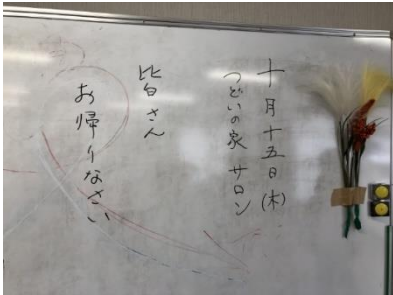 十月十五日(木)
つどいの家 サロン
皆さん
お帰りなさい